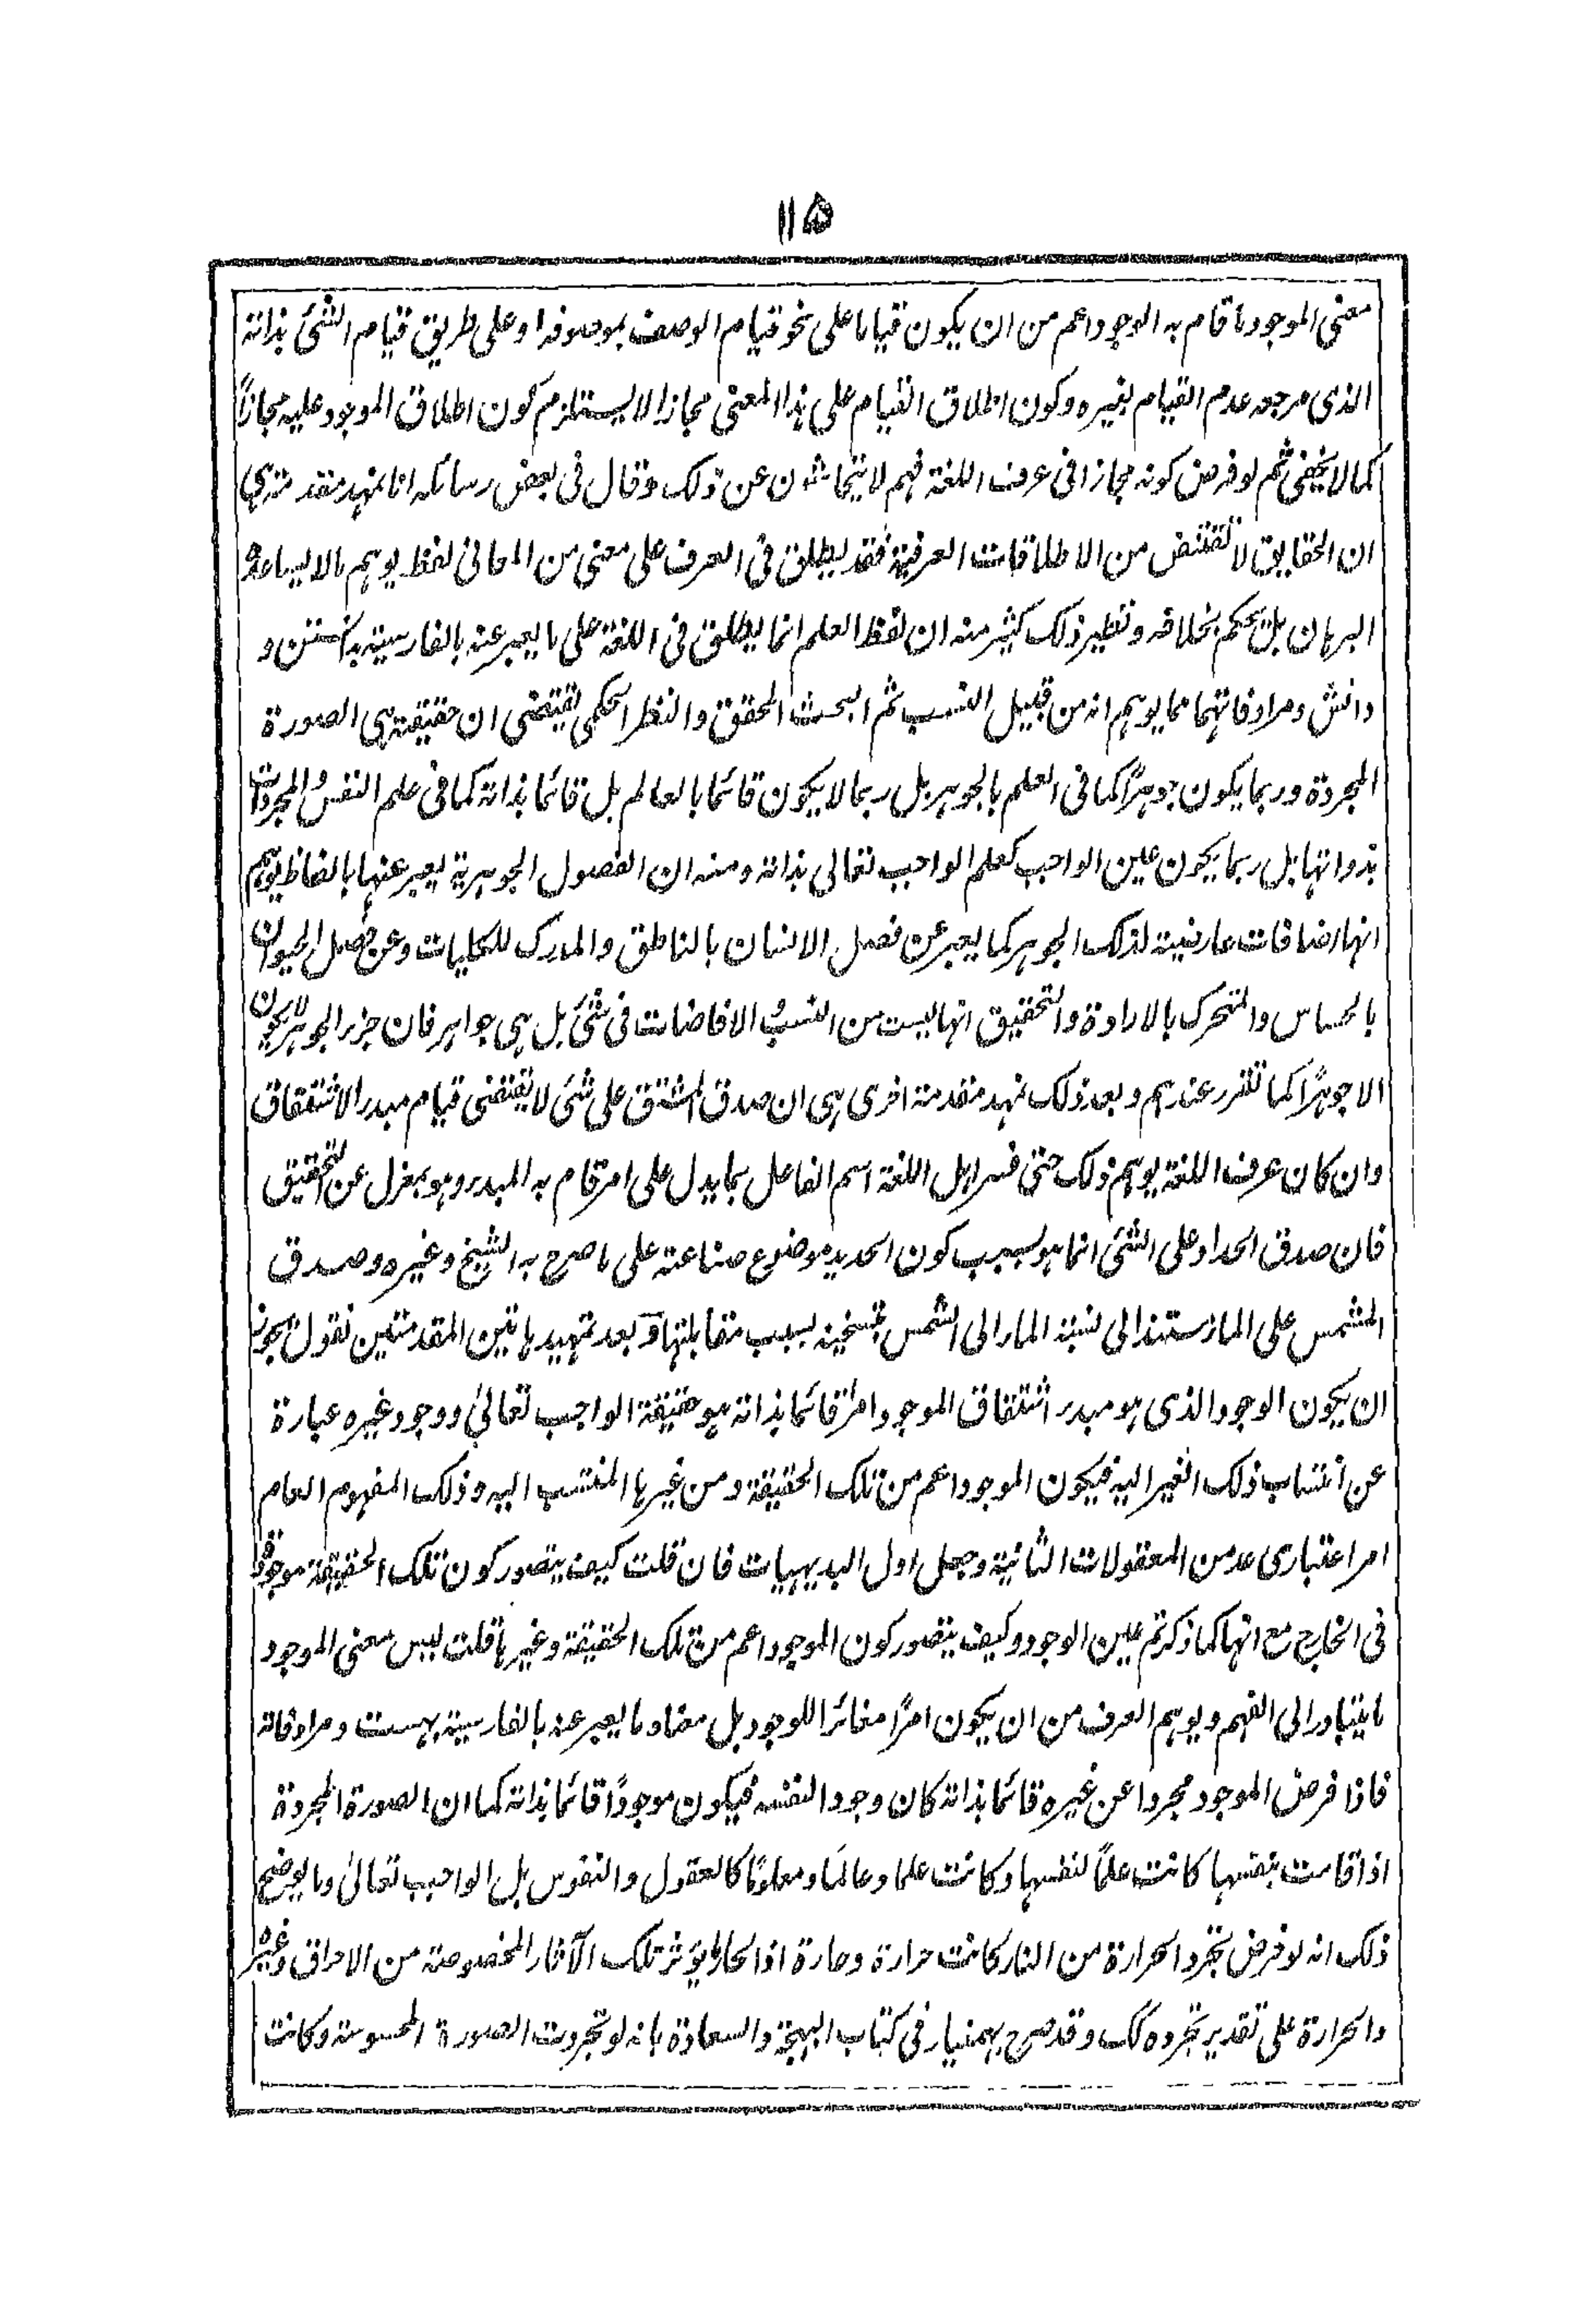 ١١٥
معنى الموجود ما قام به الوجود اعم من ان يكون قياما على نحو قيام الوصف بموصوفه او على طريق قيام الشئ بذاته
الذى مرجعه عدم القيام بغيره وكون اطلاق القيام على هذا المعنى مجازا لا يستلزم كون اطلاق الموجود عليه مجازاً
كما لا يخفى ثم لو فرض كونه مجازا فى عرف اللغة فهم لا يتحاشون عن ذلك وقال فى بعض رسائله انا نمهد مقدمة هى
ان الحقايق لا تقتنص من الاطلاقات العرفية فقد يطلق فى العرف على معنى من المعانى لفظ يوهم ما لا يساعده
البرهان بل يحكم بخلافه ونظير ذلك كثير منه ان لفظ العلم انما يطلق فى اللغة على ما يعبر عنه بالفارسية بدانستن و
دانش ومرادفاتهما مما يوهم انه من قبيل النسب ثم البحث المحقق والنظر الحكمى يقتضى ان حقيقته هى الصورة
المجردة وربما يكون جوهرًا كما فى العلم بالجوهر بل ربما لا يكون قائما بالعالم بل قائما بذاته كما فى علم النفس والمجردات
بذواتها بل ربما يكون عين الواجب كعلم الواجب تعالى بذاته ومنه ان الفصول الجوهرية يعبر عنها بالفاظ يوهم
انها اضافات عارضية لذلك الجوهر كما يعبر عن فصل الانسان بالناطق والمدرك للكليات وعن فصل الحيوان
بالحساس والمتحرك بالارادة والتحقيق انها ليست من النسب والاضافات فى شئ بل هى جواهر فان جزء الجوهر لا يكون
الا جوهرًا كما تقرر عندهم وبعد ذلك نمهد مقدمة اخرى هى ان صدق المشتق على شئ لا يقتضى قيام مبدء الاشتقاق
وان كان عرف اللغة يوهم ذلك حتى فسر اهل اللغة اسم الفاعل بما يدل على امر قام به المبدء وهو بمعزل عن التحقيق
فان صدق الحداد على الشئ انما هو بسبب كون الحديد موضوع صناعته على ما صرح به الشيخ وغيره وصدق
المشمس على الماء مستند الى نسبة الماء الى الشمس بتسخينه بسبب مقابلتها وبعد تمهيد هاتين المقدمتين نقول يجوز
ان يكون الوجود الذى هو مبدء اشتقاق الموجود امرًا قائما بذاته هو حقيقة الواجب تعالىٰ ووجود غيره عبارة
عن انتساب ذلك الغير اليه فيكون الموجود اعم من تلك الحقيقة ومن غيرها المنتسب اليه وذلك المفهوم العام
امر اعتبارى عد من المعقولات الثانية وجعل اول البديهيات فان قلت كيف يتصور كون تلك الحقيقة موجودة
فى الخارج مع انها كما ذكرتم عين الوجود وكيف يتصور كون الموجود اعم من تلك الحقيقة وغيرها قلت ليس معنى الموجود
ما يتبادر الى الفهم ويوهم العرف من ان يكون امرًا مغائرا للوجود بل معناه ما يعبر عنه بالفارسية بهست ومرادفاته
فاذا فرض الموجود مجردا عن غيره قائما بذاته كان وجودا لنفسه فيكون موجودًا قائما بذاته كما ان الصورة المجردة
اذا قامت بنفسها كانت علمًا لنفسها وكانت علما وعالمًا ومعلومًا كالعقول والنفوس بل الواجب تعالىٰ ومما يوضح
ذلك انه لو فرض تجرد الحرارة من النار كانت حرارة وحارة اذ الحار ما يؤثر تلك الآثار المخصوصة من الاحراق وغيره
والحرارة على تقدير تجرده كك وقد صرح بهمنيار فى كتاب البهجة والسعادة بانه لو تجردت الصورة المحسوسة وكانت